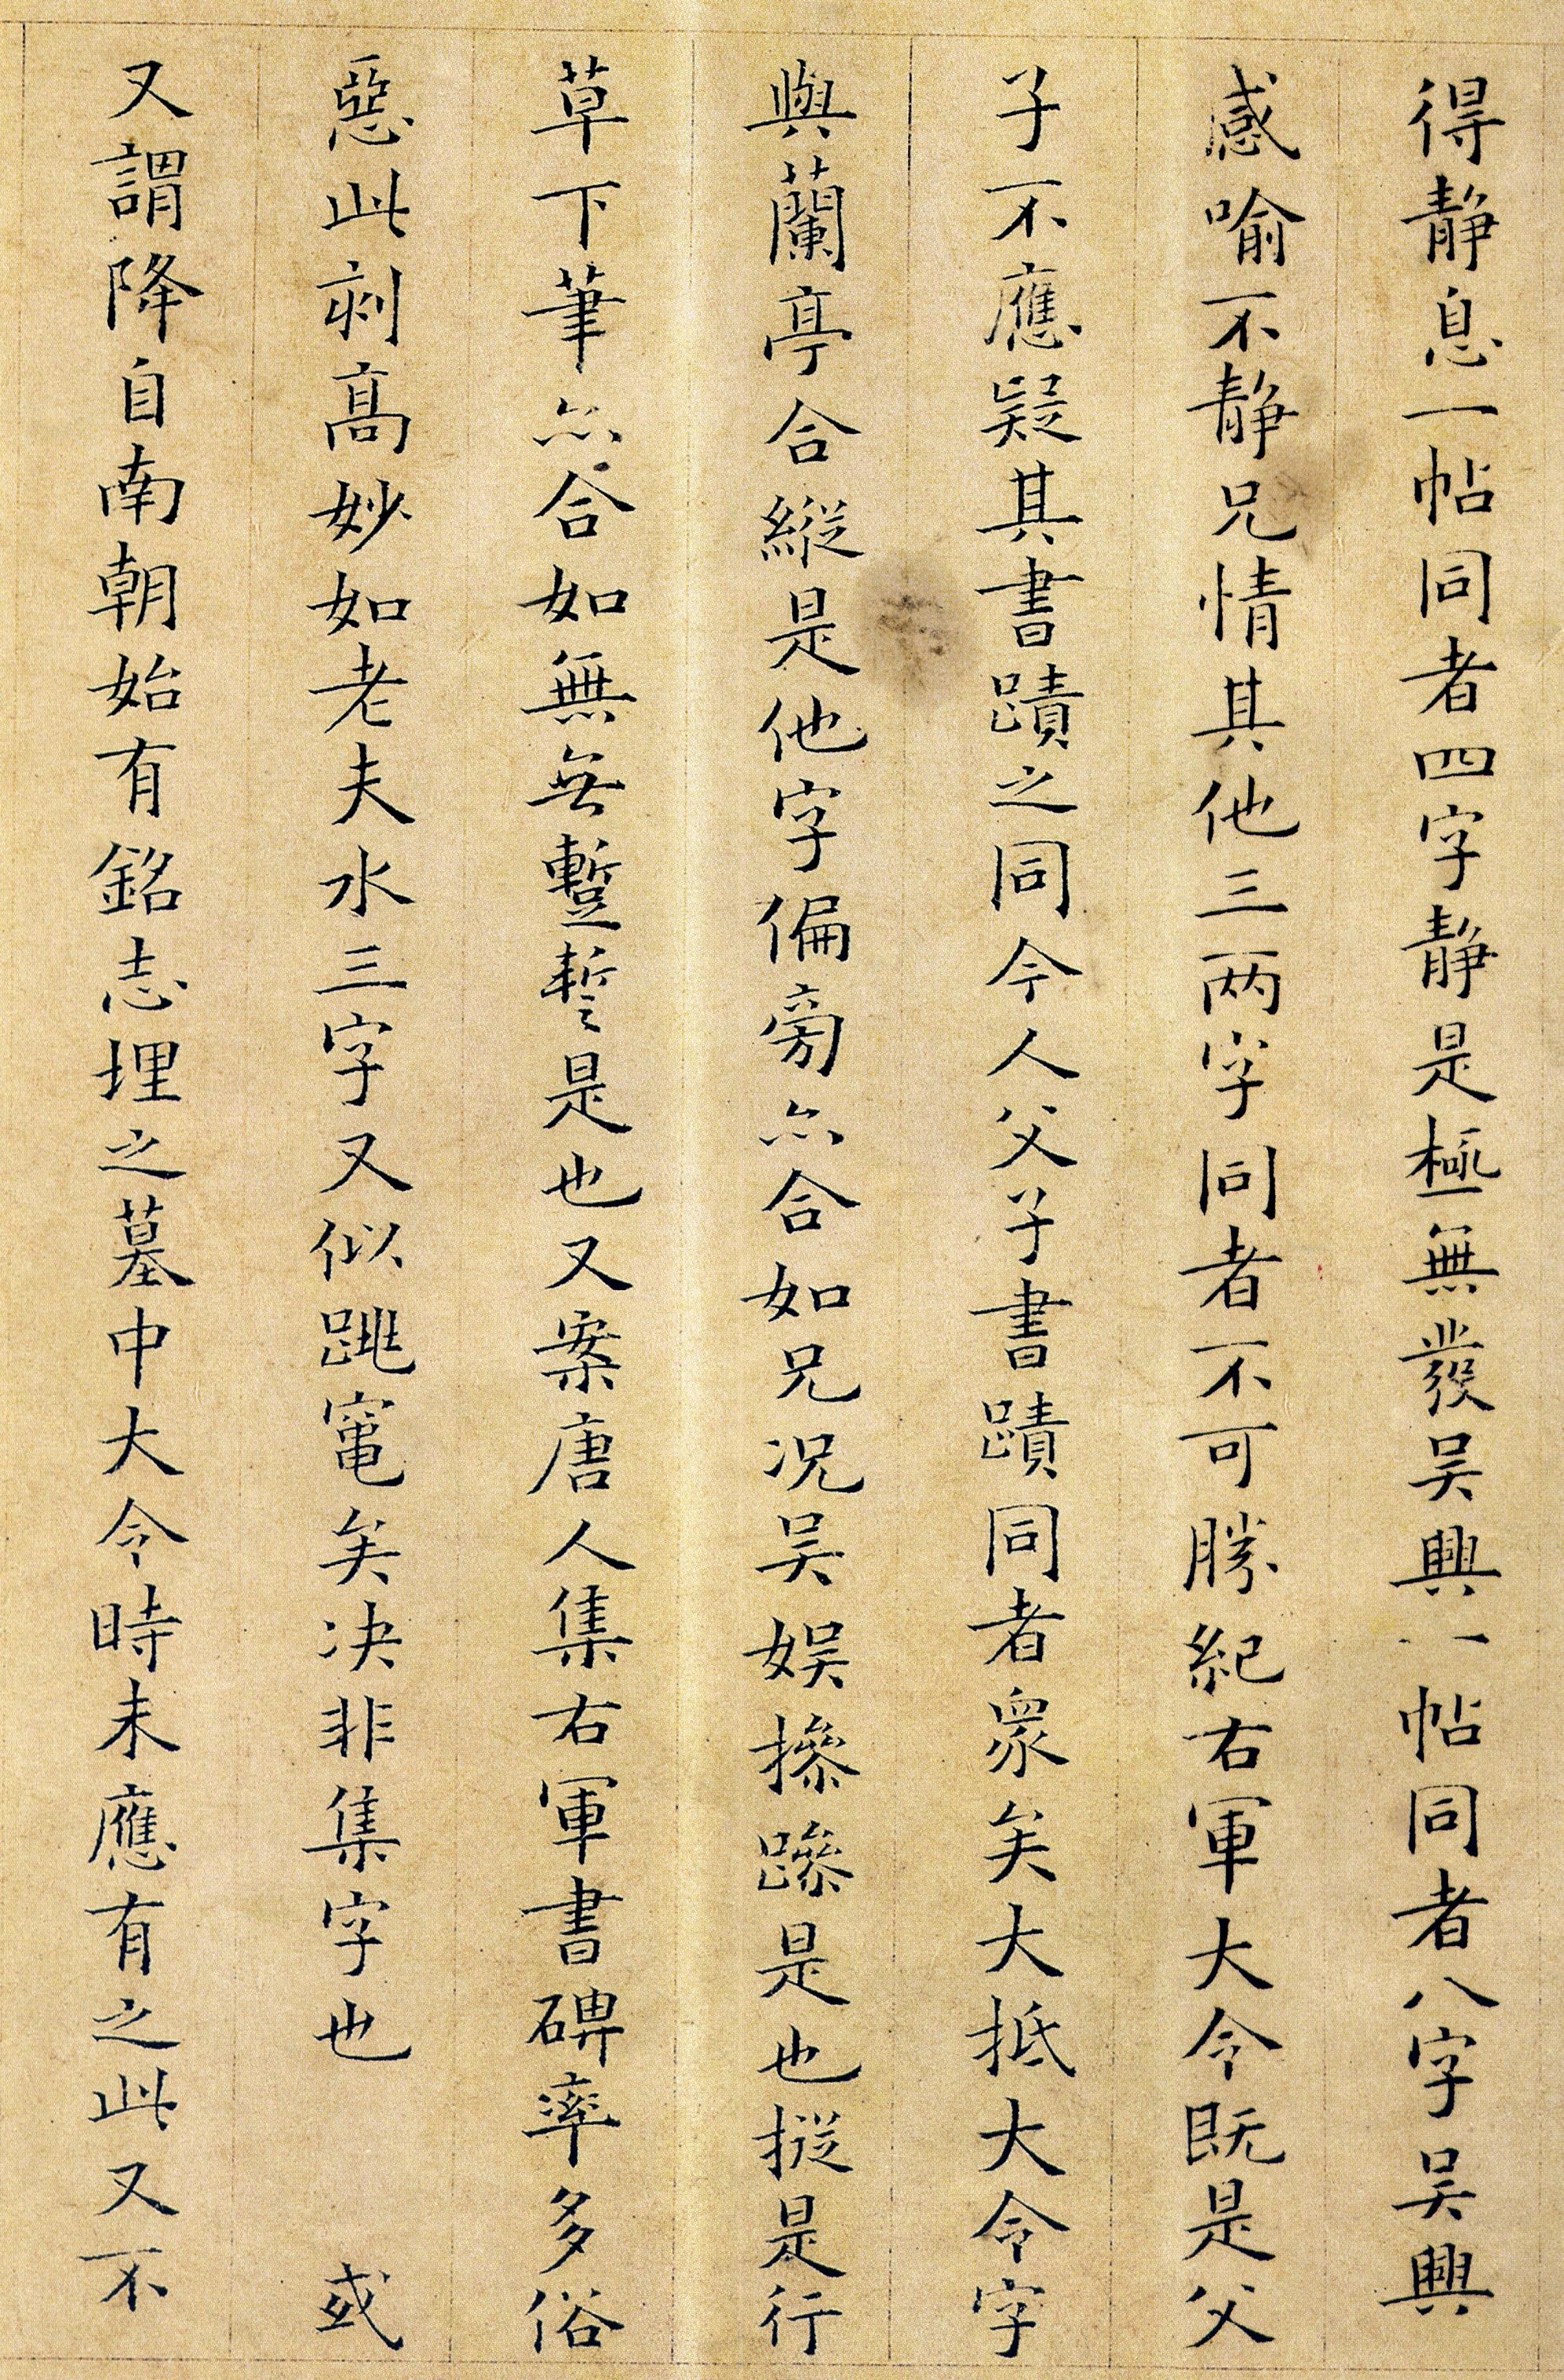 得静息一帖同者四字静是極無發吴興一帖同者八字吴興
感喻不静兄情其他三两字同者不可勝紀右軍大令既是父
子不應疑其書蹟之同今人父子書蹟同者衆矣大抵大令字
與蘭亭合縱是他字偏旁亦合如兄况吴娱摻蹂是也摐是行
草下筆亦合如無無蹔誓是也又案唐人集右軍書碑率多俗
惡此刻高妙如老夫水三字又似跳竄矣决非集字也　　或
又謂降自南朝始有銘志埋之墓中大令時未應有之此又不